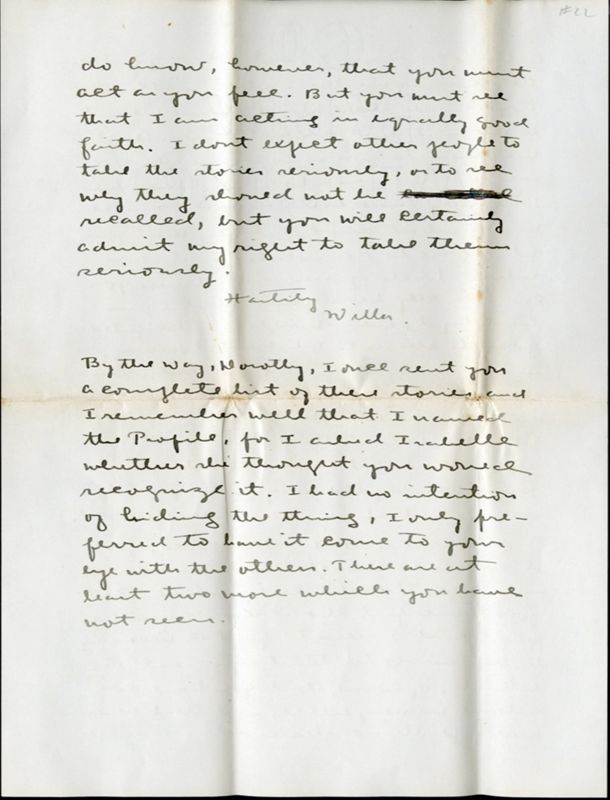 #22
do know, however, that you must
act as you feel. But you must see
that I am acting in equally good
faith. I dont expect other people to
take the stories seriously, or to see
why they should not be
recalled, but you will certainly
admit my right to take them
seriously.
Hastily
Willa.
By the way, Dorothy, I once sent you
a complete list of these stories and
I remember well that I named
the Profile, for I asked Isabelle
whether she thought you would
recognize it. I had no intention
of hiding the thing, I only pre-
ferred to have it come to your
eye with the others. There are at
least two more which you have
not seen.